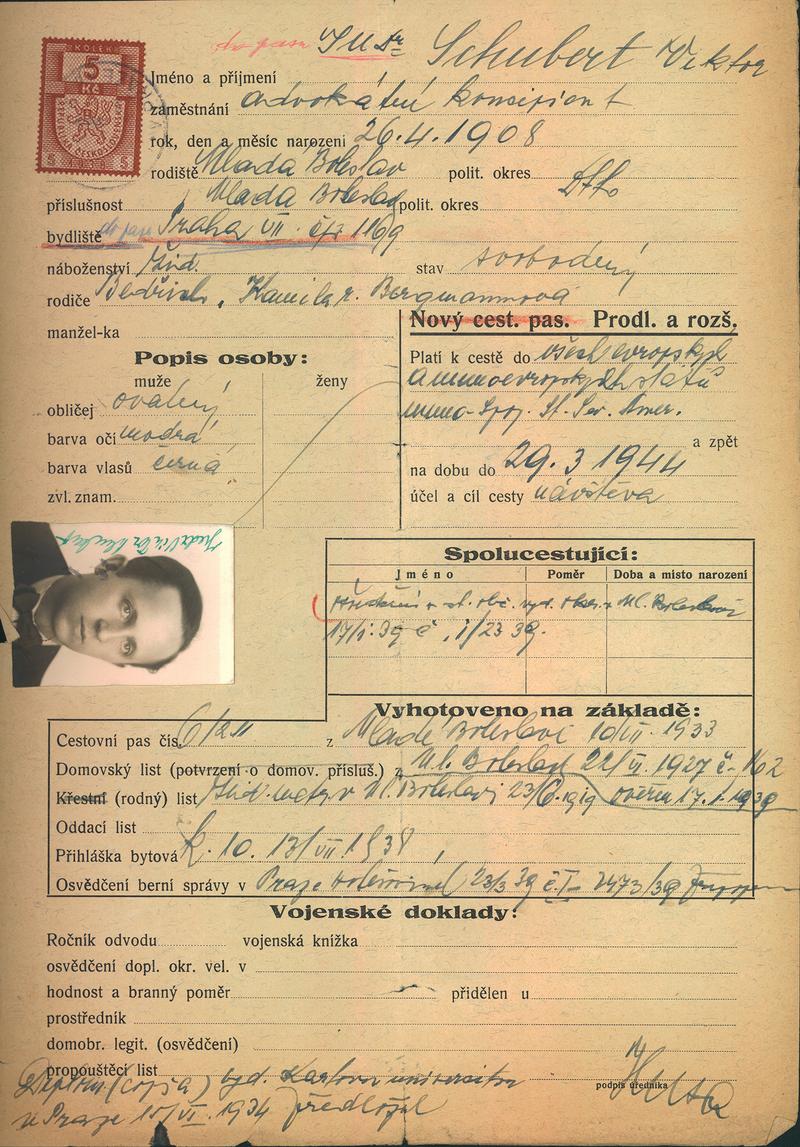 do pasu JUDr Schubert Viktor
KOLEK
5
Kč
Jméno a příjmení
zaměstnání advokátní koncipient
rok, den a měsíc narozeni 26.4.1908
rodiště Mladá Boleslav polit. okres dtto
příslušnost Mladá Boleslav polit. okres
bydliště do pasu Praha VII. čp. 1169
náboženství žid. stav svobodný
rodiče Bedřich, Kamila r. Bergmannová
manžel-ka
Nový cest. pas. Prodl. a rozš.
Popis osoby:
muže ženy
obličej oválný
barva očí modrá
barva vlasů černá
zvl. znam.
Platí k cestě do všech evropských
a mimoevropských států
mimo Spoj. St. Sev. Amer.
a zpět
na dobu do 29.3 1944
účel a cíl cesty návštěva
Spolucestující:
Jméno Poměr Doba a místo narození
v Ml. Boleslavi
17/I. 39 č.
Vyhotoveno na základě:
Cestovní pas čís. z Mladé Boleslavi 1933
Domovský list (potvrzení o domov. přísluš.) z Ml. Boleslav 22/VI. 1927 č. 162
Křestní (rodný) list Žid. v Ml. Boleslavi 23/6. 1919 ověřen 17.1.1939
Oddací list
Přihláška bytová 10. 13/VII. 1938
Osvědčení berní správy v Praze 23/3 39 č. I- 2473/39
Vojenské doklady:
Ročník odvodu vojenská knížka
osvědčení dopl. okr. vel. v
hodnost a branný poměr přidělen u
prostředník
domobr. legit. (osvědčení)
propouštěcí list
Diplom (copia) vyd. Karlova universita
v Praze 15/VI. 1934 předložil
podpis úředníka